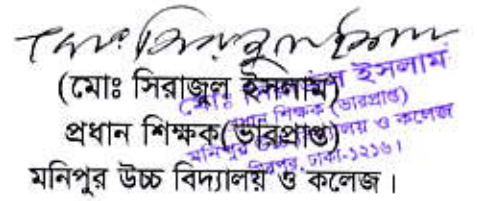 মোঃ সিরাজুল ইসলাম
(মোঃ সিরাজুল ইসলাম)
প্রধান শিক্ষক(ভারপ্রাপ্ত)
মনিপুর উচ্চ বিদ্যালয় ও কলেজ।
মোঃ ইসলাম
শিক্ষক (ভারপ্রাপ্ত)
মনিপুর ও কলেজ
মিরপুর, ঢাকা-১২১৬।